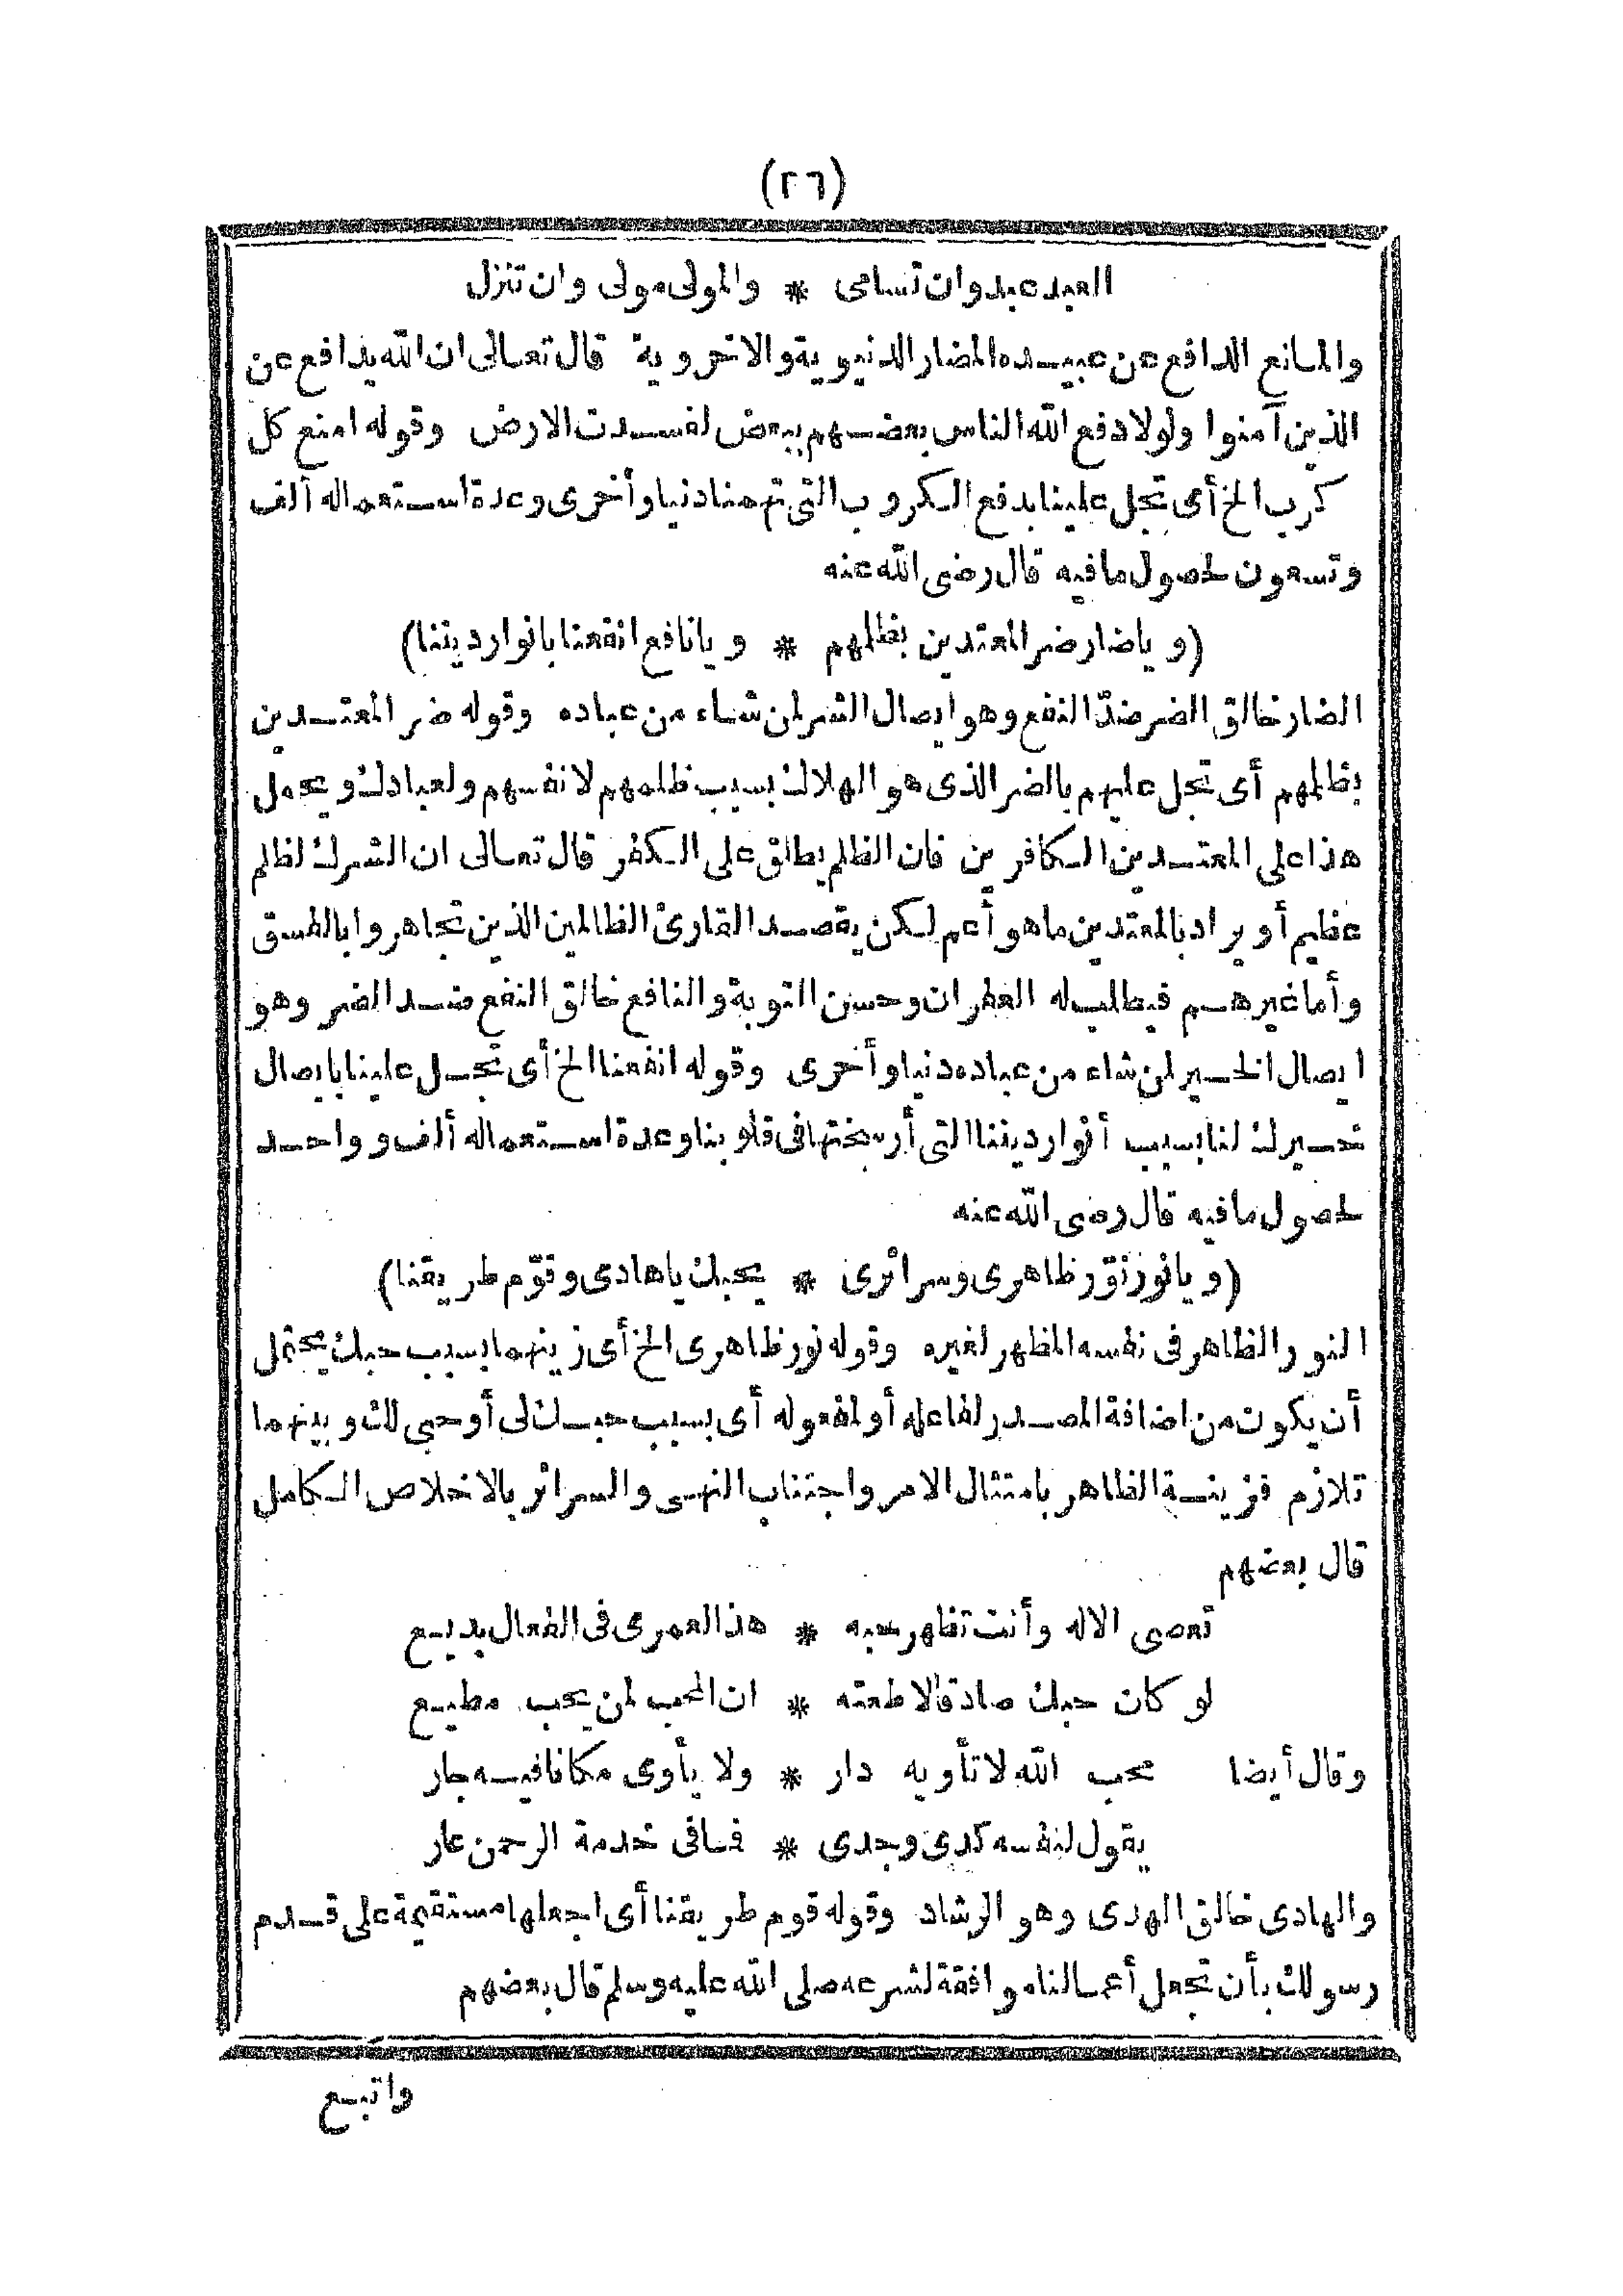 (٢٦)
العبد عبد وان تسامى * والمولى مولى وان تنزل
والمانع الدافع عن عبيده المضار الدنيوية والاخروية قال تعالى ان الله يدافع عن
الذين آمنوا ولولا دفع الله الناس بعضهم ببعض لفسدت الارض وقوله امنع كل
كرب الخ أى تجل علينا بدفع الكروب التى تهمنا دنيا وأخرى وعدة استعماله ألف
وتسعون لحصول ما فيه قال رضى الله عنه
(ويا ضار ضر المعتدين بظلمهم * ويا نافع انفعنا بانوار ديننا)
الضار خالق الضر ضدّ النفع وهو ايصال الشر لمن شاء من عباده وقوله ضر المعتدين
بظلمهم أى تجل عليهم بالضر الذى هو الهلاك بسبب ظلمهم لانفسهم ولعبادك ويحمل
هذا على المعتدين الكافرين فان الظلم يطلق على الكفر قال تعالى ان الشرك لظلم
عظيم أو يراد بالمعتدين ما هو أعم لكن يقصد القارئ الظالمين الذين تجاهروا بالفسق
وأما غيرهم فيطلب له الغفران وحسن التوبة والنافع خالق النفع ضد الضر وهو
ايصال الخير لمن شاء من عباده دنيا وأخرى وقوله انفعنا الخ أى تجل علينا بايصال
خيرك لنا بسبب أنوار ديننا التى أرسختها فى قلوبنا وعدة استعماله ألف وواحد
لحصول ما فيه قال رضى الله عنه
(ويا نور نوّر ظاهرى وسرائرى * بحبك يا هادى وقوّم طريقنا)
النور الظاهر فى نفسه المظهر لغيره وقوله نور ظاهرى الخ أى زينهما بسبب حبك يحتمل
أن يكون من اضافة المصدر لفاعله أو لمفعوله أى بسبب حبك لى أو حبى لك وبينهما
تلازم فزينة الظاهر بامتثال الامر واجتناب النهى والسرائر بالاخلاص الكامل
قال بعضهم
تعصى الاله وأنت تظهر حبه * هذا لعمرى فى الفعال بديع
لو كان حبك صادقا لاطعته * ان المحب لمن يحب مطيع
وقال أيضا محب الله لا تأويه دار * ولا يأوى مكانا فيه جار
يقول لنفسه كدى وجدى * فما فى خدمة الرحمن عار
والهادى خالق الهدى وهو الرشاد وقوله قوم طريقنا أى اجعلها مستقيمة على قدم
رسولك بأن تجعل أعمالنا موافقة لشرعه صلى الله عليه وسلم قال بعضهم
واتبع